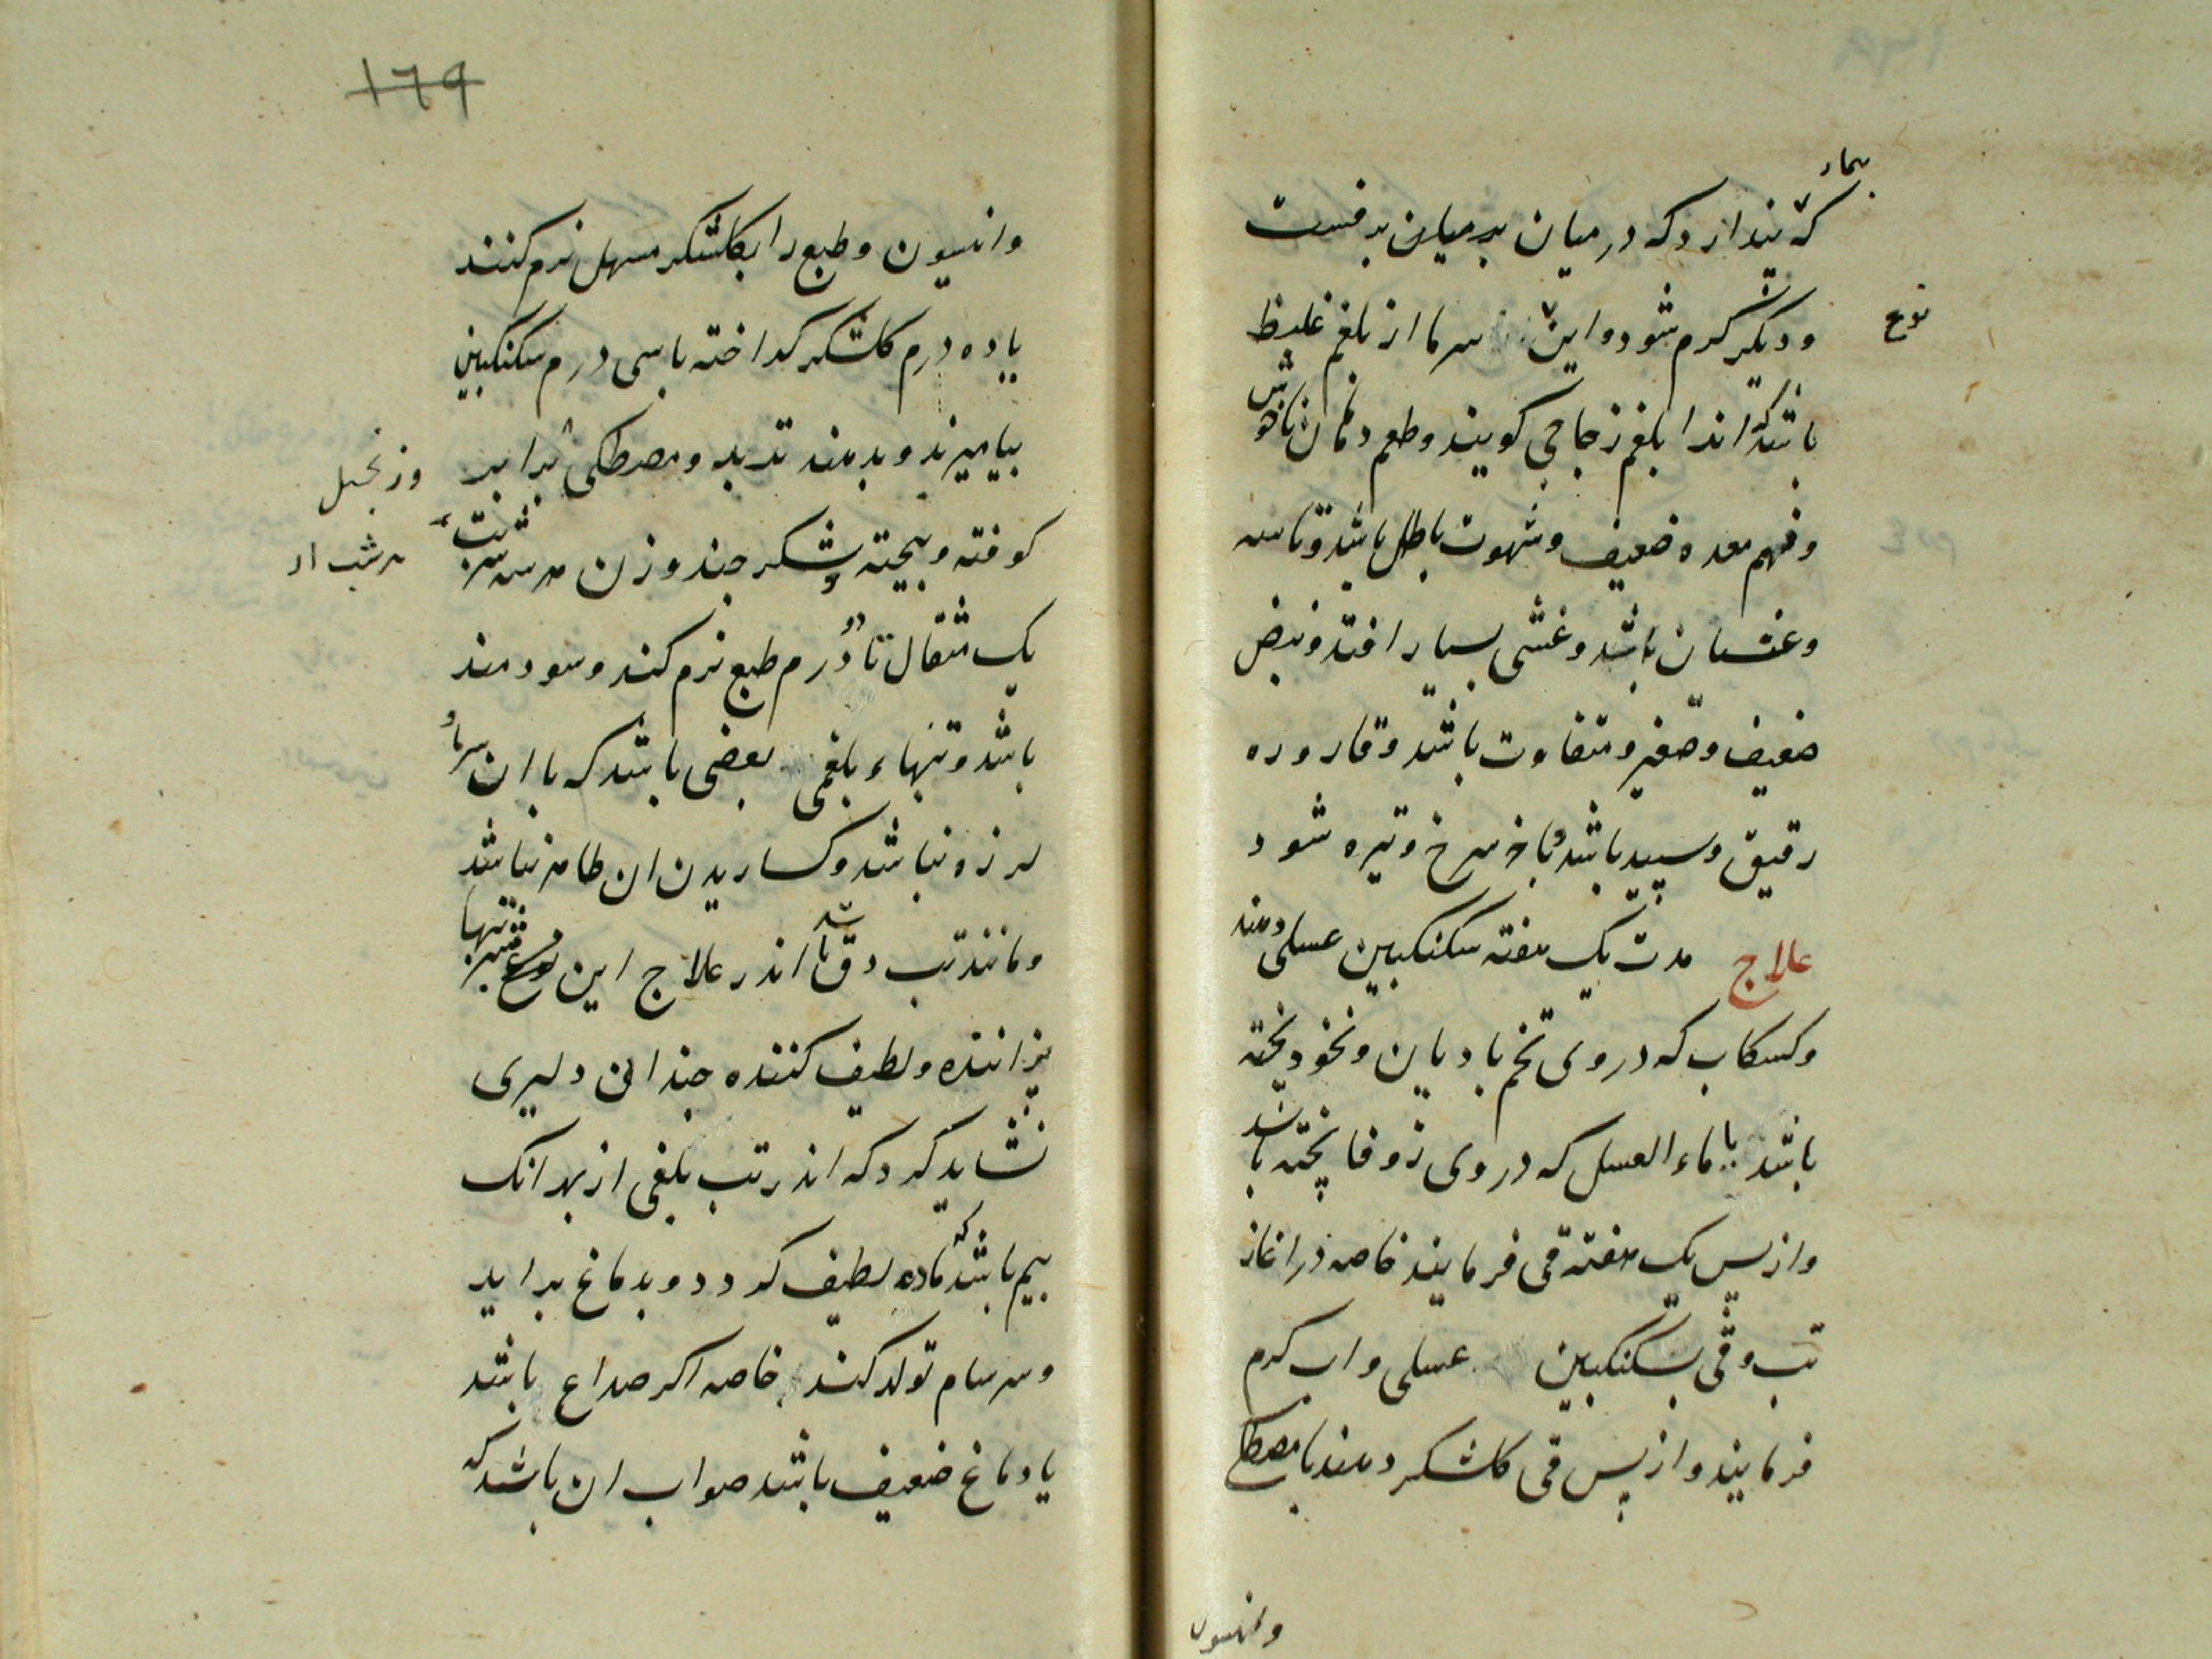 بیمار
که پندارد که در میان بر میان برفست
نوع
و دیکر کرم شود و این سرما از بلغم غلیظ
باشد که انرا بلغم زجاجی کویند و طعم دهان ناخوش
و فهم معده ضعیف و شهوت باطل باشد و تاسه
و غثیان باشد و غشی بسیار افتد و نبض
ضعیف و صغیر و متفاوت باشد و قاروره
رقیق و سپید باشد و باخر سرخ و تیره شود
علاج مدت یک هفته سکنکبین عسلی دهند
و کسکاب که در وی تخم بادیان و نخود پخته
باشد یا ماء العسل که در وی زوفا پخته باشد
و از پس یک هفته قی فرمایند خاصه در اغاز
تب و قی بسکنکبین عسلی و اب کرم
فرمایند و از پس قی کلشکر دهند با مصطکی
وانیسون
١٦٩
وانیسون و طبع را بکلشکر مسهل نرم کنند
یا ده درم کلشکر کداخته با سی درم سکنکبین
بیامیزند و بدهند تربد و مصطکی برابر
وزنجبیل
کوفته و بیخته و شکر چند وزن هر سه شربت
هر شب از
یک مثقال تا دو درم طبع نرم کند و سودمند
باشد و تبهاء بلغمی بعضی باشد که با ان سرما و
لرزه نباشد و کساریدن ان ظاهر نباشد
و مانند تب دق باشد اندر علاج این نوع تبها
پزاننده و لطیف کننده چندانی دلیری
نشاید کرد که اندر تب بلغمی از بهر انک
بیم باشد که ماده لطیف کردد و بدماغ براید
و سرسام تولد کند خاصه اکر صداع باشد
یا دماغ ضعیف باشد صواب ان باشد که